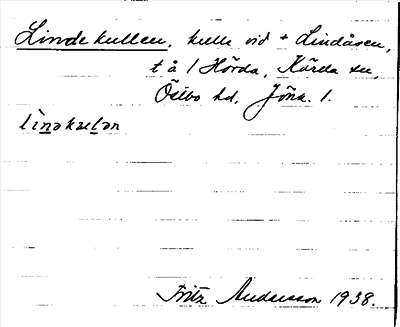 Lindekullen, kulle vid + Lindåsen,
t å 1 Hörda, Kärda sn,
Östbo hd, Jönk. l.
lìnəkɯlən
Fritz Andersson 1938.